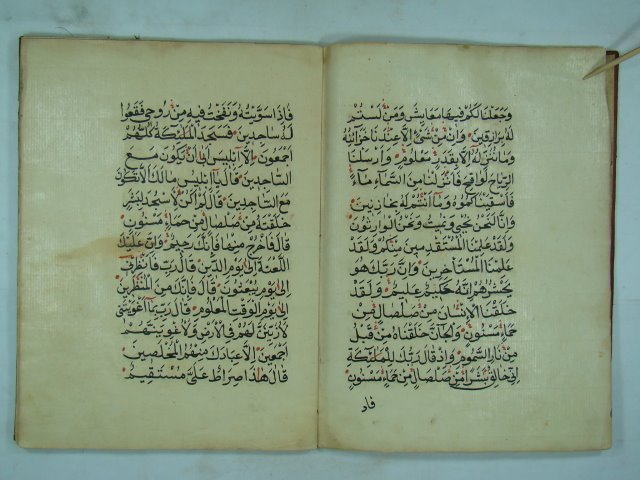 وجعلنا لكم فيها معايش ومن لستم
له برازقين وإن من شيء إلا عندنا خزائنه
وما ننزله إلا بقدر معلوم وأرسلنا
الرياح لواقح فأنزلنا من السماء ماء
فأسقيناكموه وما أنتم له بخازنين
وإنا لنحن نحيي ونميت ونحن الوارثون
ولقد علمنا المستقدمين منكم ولقد
علمنا المستأخرين وإن ربك هو
يحشرهم إنه حكيم عليم ولقد
خلقنا الإنسان من صلصال من
حماء مسنون والجان خلقناه من قبل
من نار السموم وإذ قال ربك للملئكة
إني خالق بشرا من صلصال من حماء مسنون
فاذ
فإذا سويته ونفخت فيه من روحي فقعوا
له ساجدين فسجد الملئكة كلهم
أجمعون إلا إبليس أبى أن يكون مع
الساجدين قال يا إبليس مالك ألا تكون
مع الساجدين قال لم أكن لأسجد لبشر
خلقته من صلصال من حماء مسنون
قال فاخرج منها فإنك رجيم وإن عليك
اللعنة إلى يوم الدين قال رب فأنظرني
إلى يوم يبعثون قال فإنك من المنظرين
إلى يوم الوقت المعلوم قال رب بما أغويتني
لأزينن لهم في الأرض ولأغوينهم
أجمعين إلا عبادك منهم المخلصين
قال هذا صراط علي مستقيم